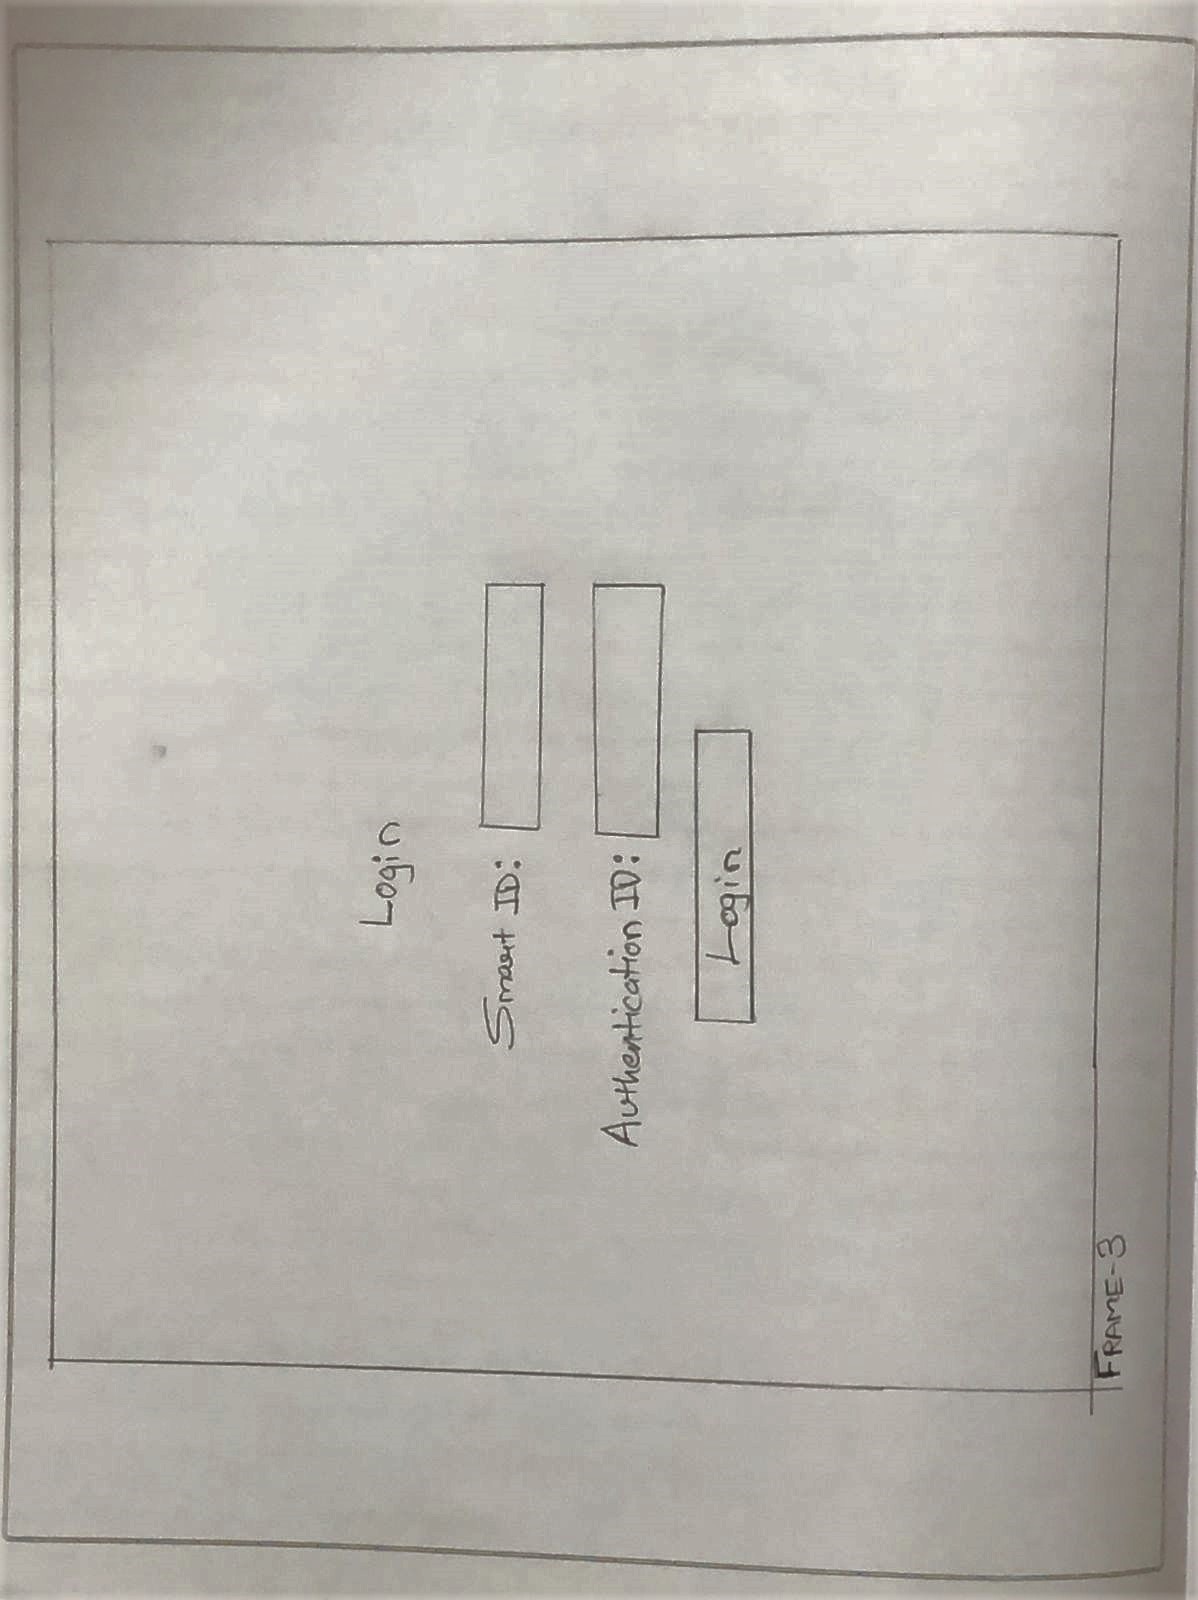 Login
Smart ID:
Authentication ID:
Login
FRAME-3